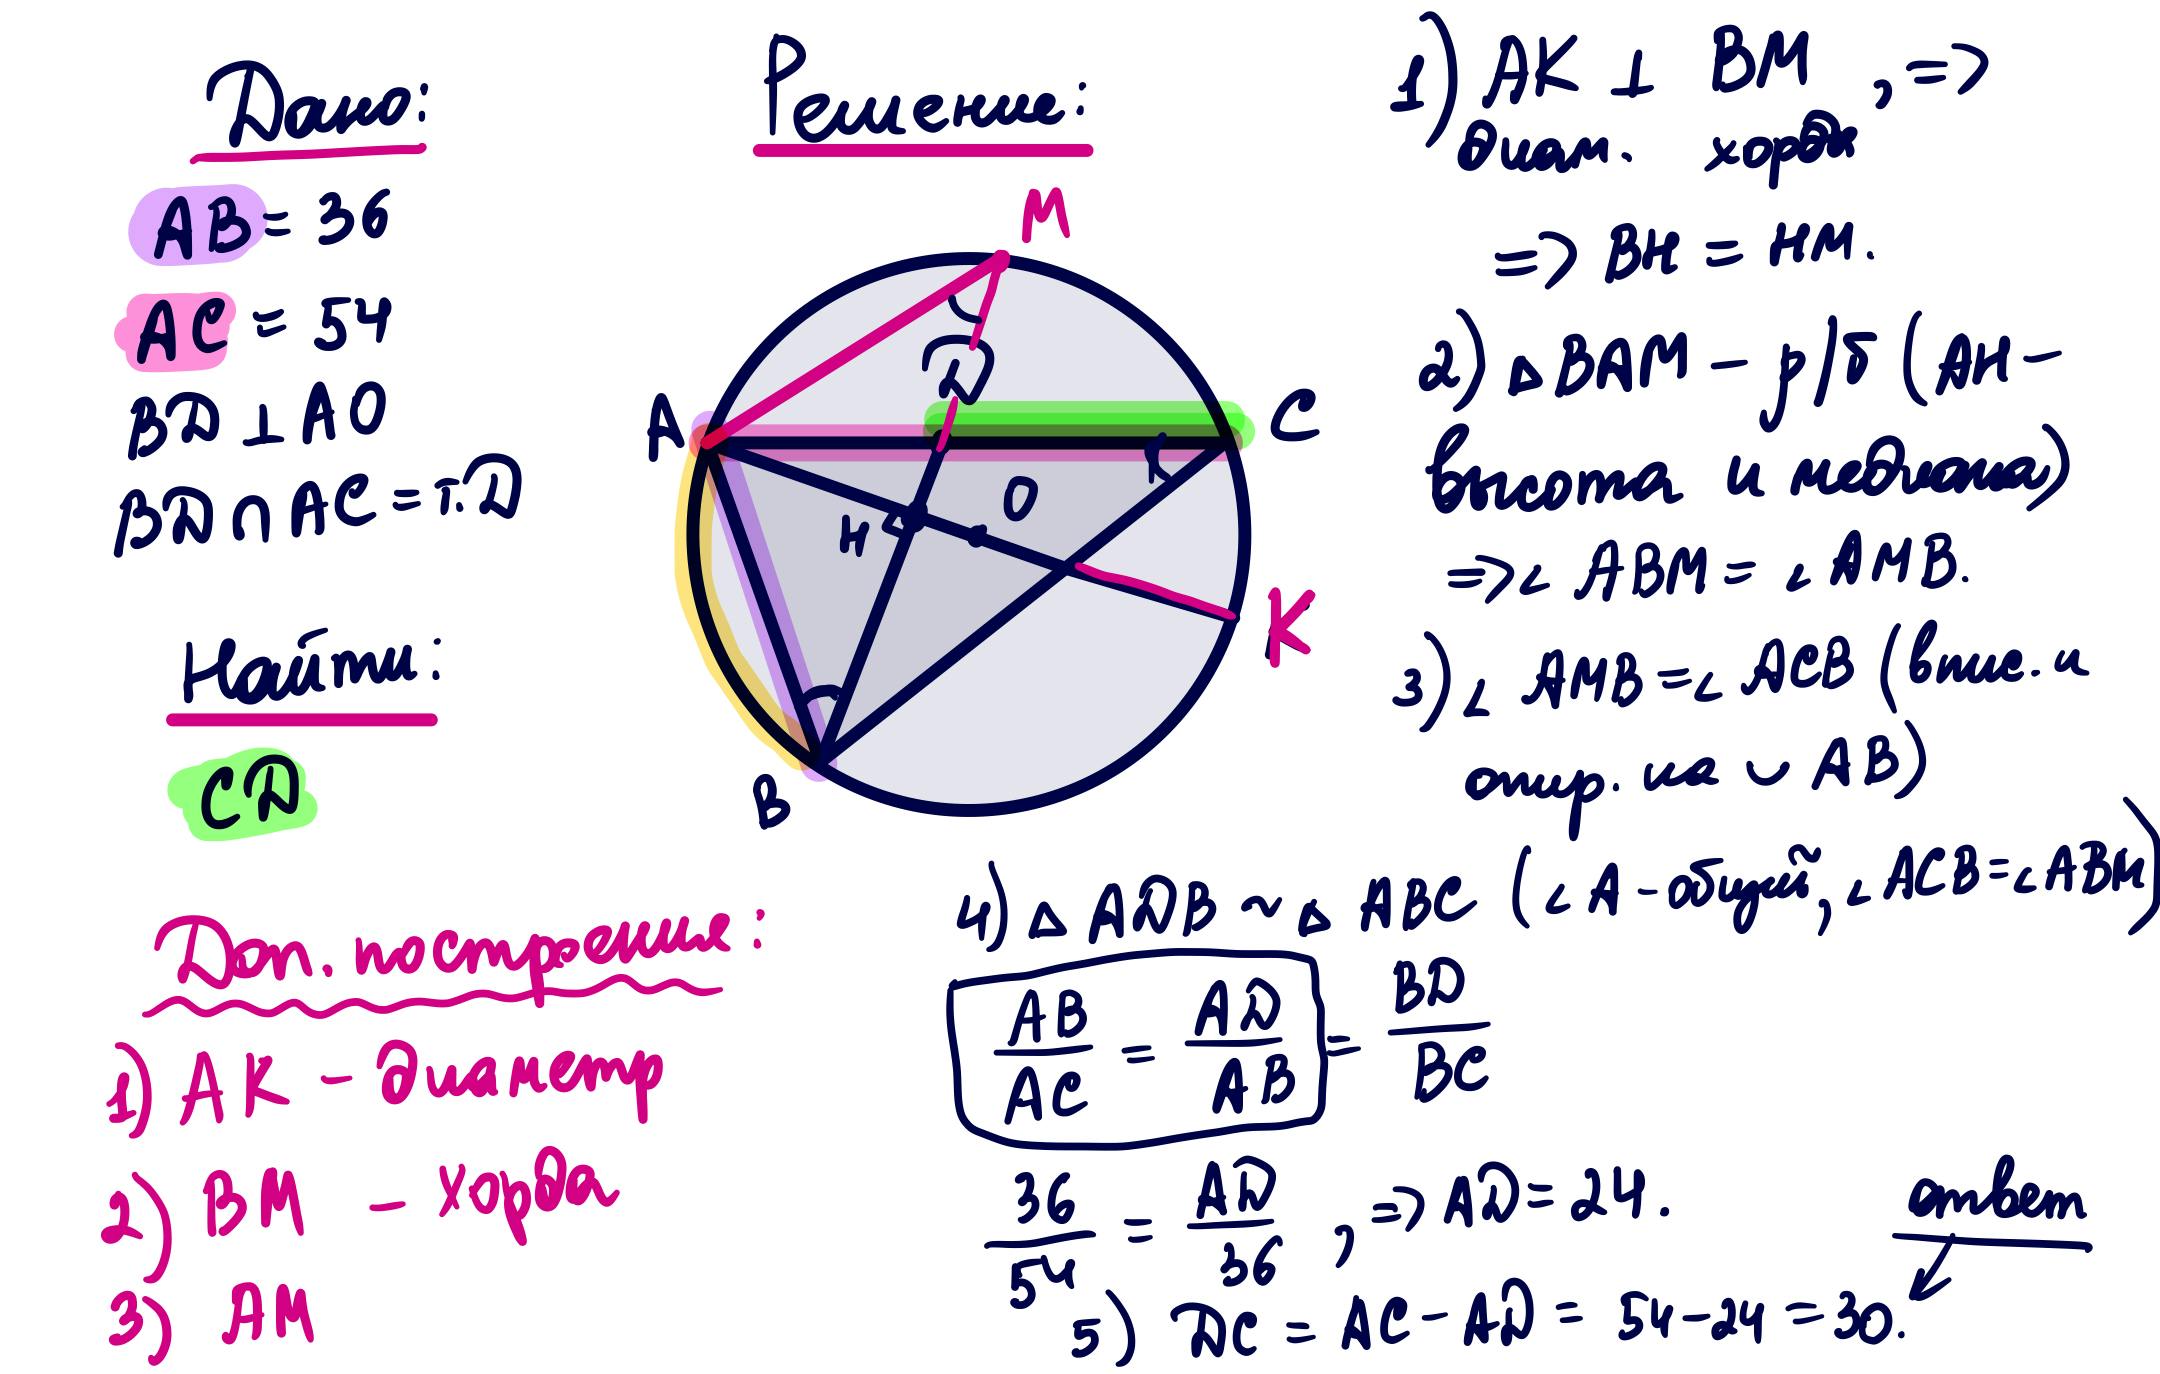 Дано:
AB = 36
AC = 54
BD ⊥ AO
BD ∩ AC = т.D
Найти:
CD
Доп. построения:
1) AK - диаметр
2) BM - хорда
3) AM
Решение:
M
D
A
C
O
H
K
B
1) AK ⊥ BM , =>
диам. хорда
=> BH = HM.
2) △ BAM - р/б (AH -
высота и медиана)
=> ∠ ABM = ∠ AMB.
3) ∠ AMB = ∠ ACB (впис. и
опир. на ◡ AB)
4) △ ADB ~ △ ABC (∠ A - общий, ∠ ACB = ∠ ABM)
AB/AC = AD/AB = BD/BC
36/54 = AD/36 , => AD = 24.
ответ
5) DC = AC - AD = 54 - 24 = 30.